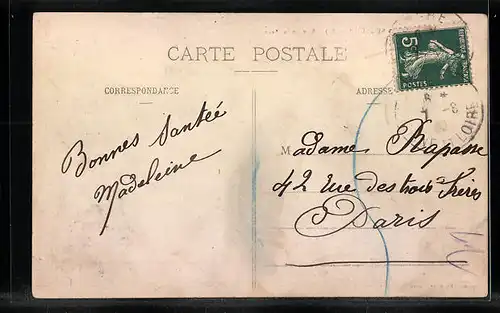 CARTE POSTALE
CORRESPONDANCE
ADRESSE
5
POSTES
LOIRE
Bonnes Santée
Madeleine
Madame Rapasse
42 Rue des trois Frères
Paris